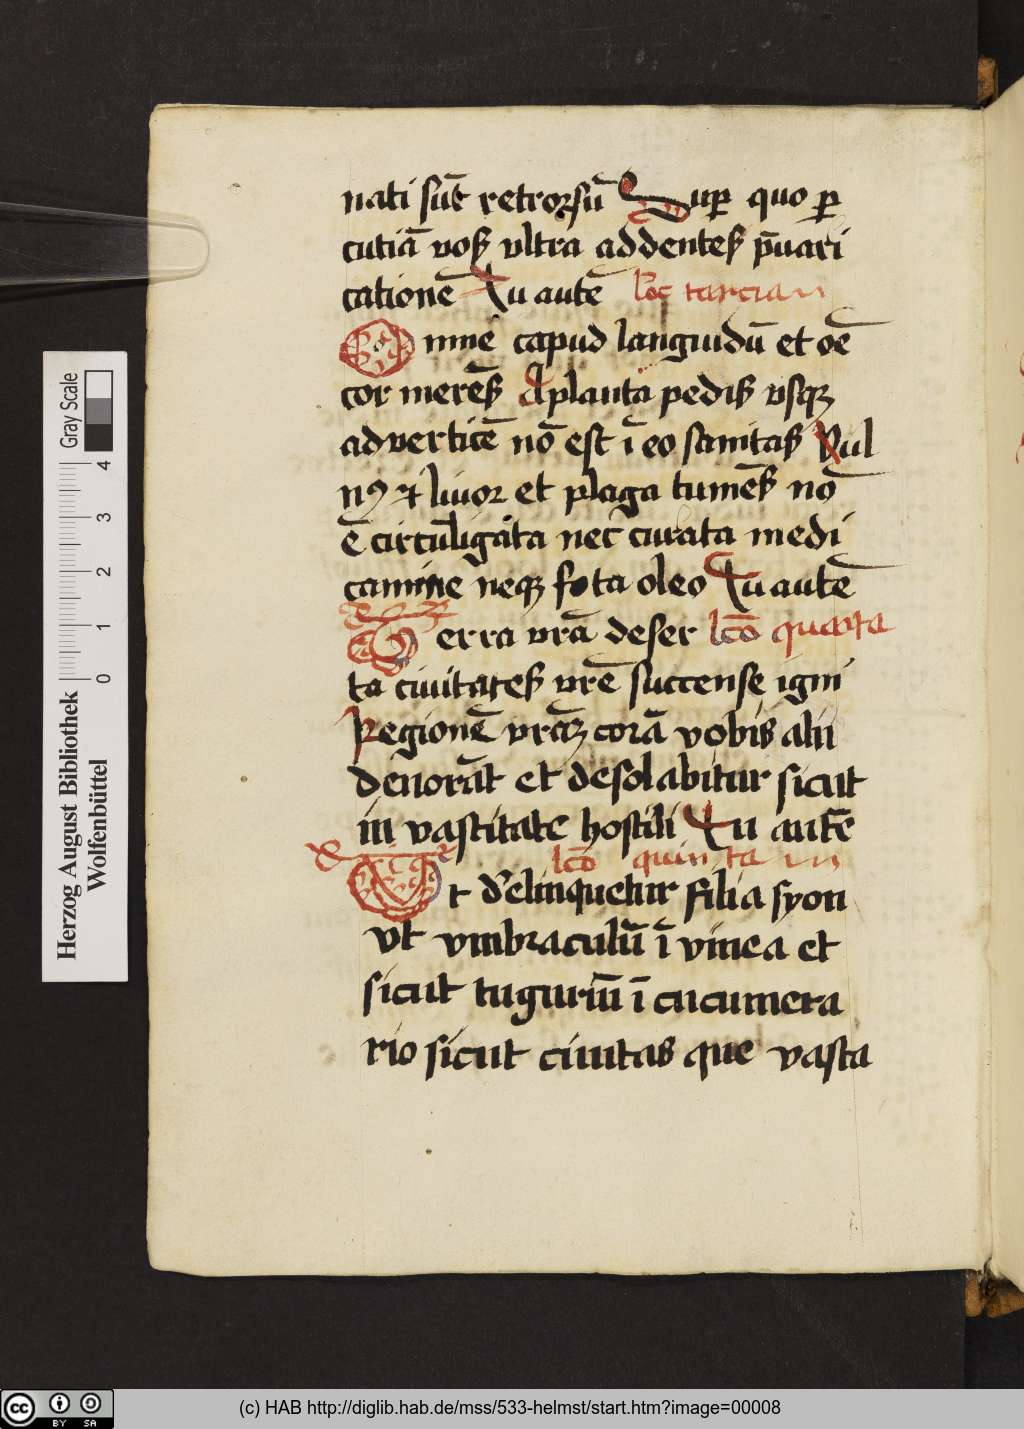 nati sūt retrorsū Suꝑ quo ꝑ
cutiā vos vltra addentes p̄uari
cationē Tu autē lc̄o tarcia
Omne capud languidū et oē
cor merēs A planta pedis vsqꝫ
ad verticē nō est ī eo sanitas Vul
nꝰ et liuor et plaga tumēs nō
ē circūligata nec curata medi
camine neqꝫ fota oleo Tu autē
Terra vrā deser lc̄o quarta
ta ciuitates vrē succense igni
Regionē vrāꝫ corā vobis alii
deuorāt et desolabitur sicut
in vastitate hostili Tu autē
lc̄o quinta
Et derelinquetur filia syon
vt vmbraculū ī vinea et
sicut tuguriū ī cucumera
rio sicut ciuitas que vasta
Gray Scale
4 3 2 1 0
Herzog August Bibliothek
Wolfenbüttel
cc BY SA
(c) HAB http://diglib.hab.de/mss/533-helmst/start.htm?image=00008